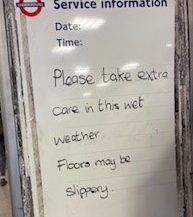 UNDERGROUND
Service information
Date:
Time:
Please take extra
care in this wet
weather.
Floors may be
slippery.